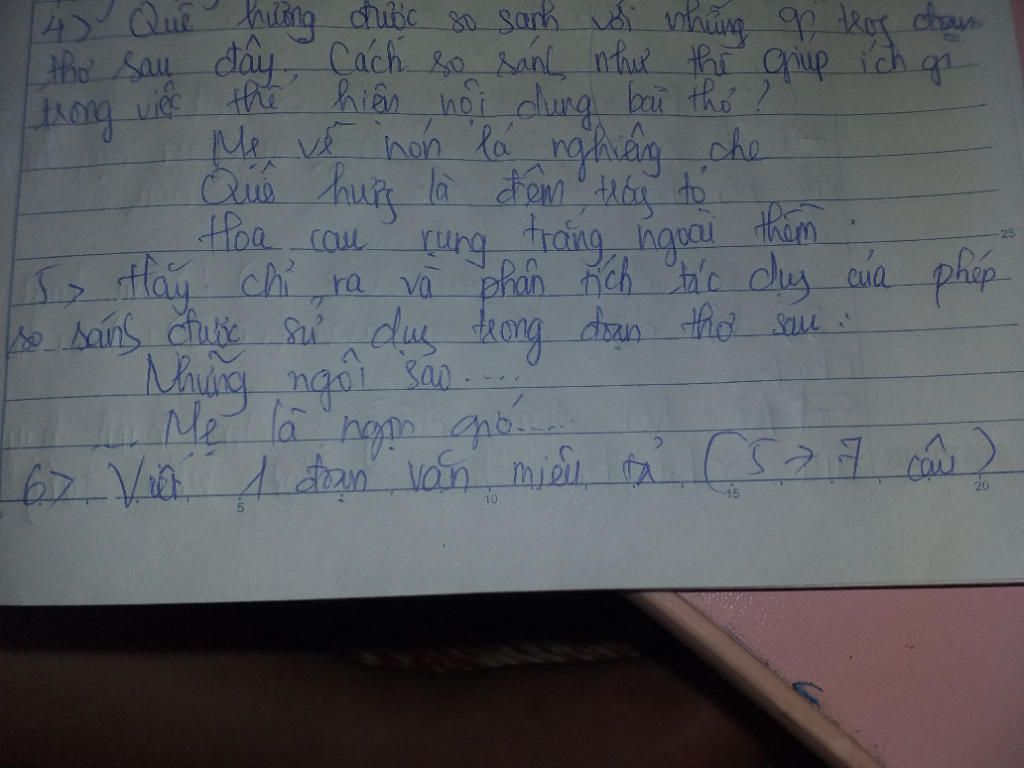 4> Quê hương được so sánh với những gì trog đoạn
thơ sau đây. Cách so sánh như thế giúp ích gì
trong việc thể hiện nội dung bài thơ?
Mẹ về nón lá nghiêng che
Quê hươg là đêm trăg tỏ
Hoa cau rụng trắng ngoài thềm.
5> Hãy chỉ ra và phân tích tác dụg của phép
so sáng được sử dụg trong đoạn thơ sau:
Những ngôi sao....
... Mẹ là ngọn gió.....
6> Viết 1 đoạn văn miêu tả (5 → 7 câu)
5 10 15 20
25